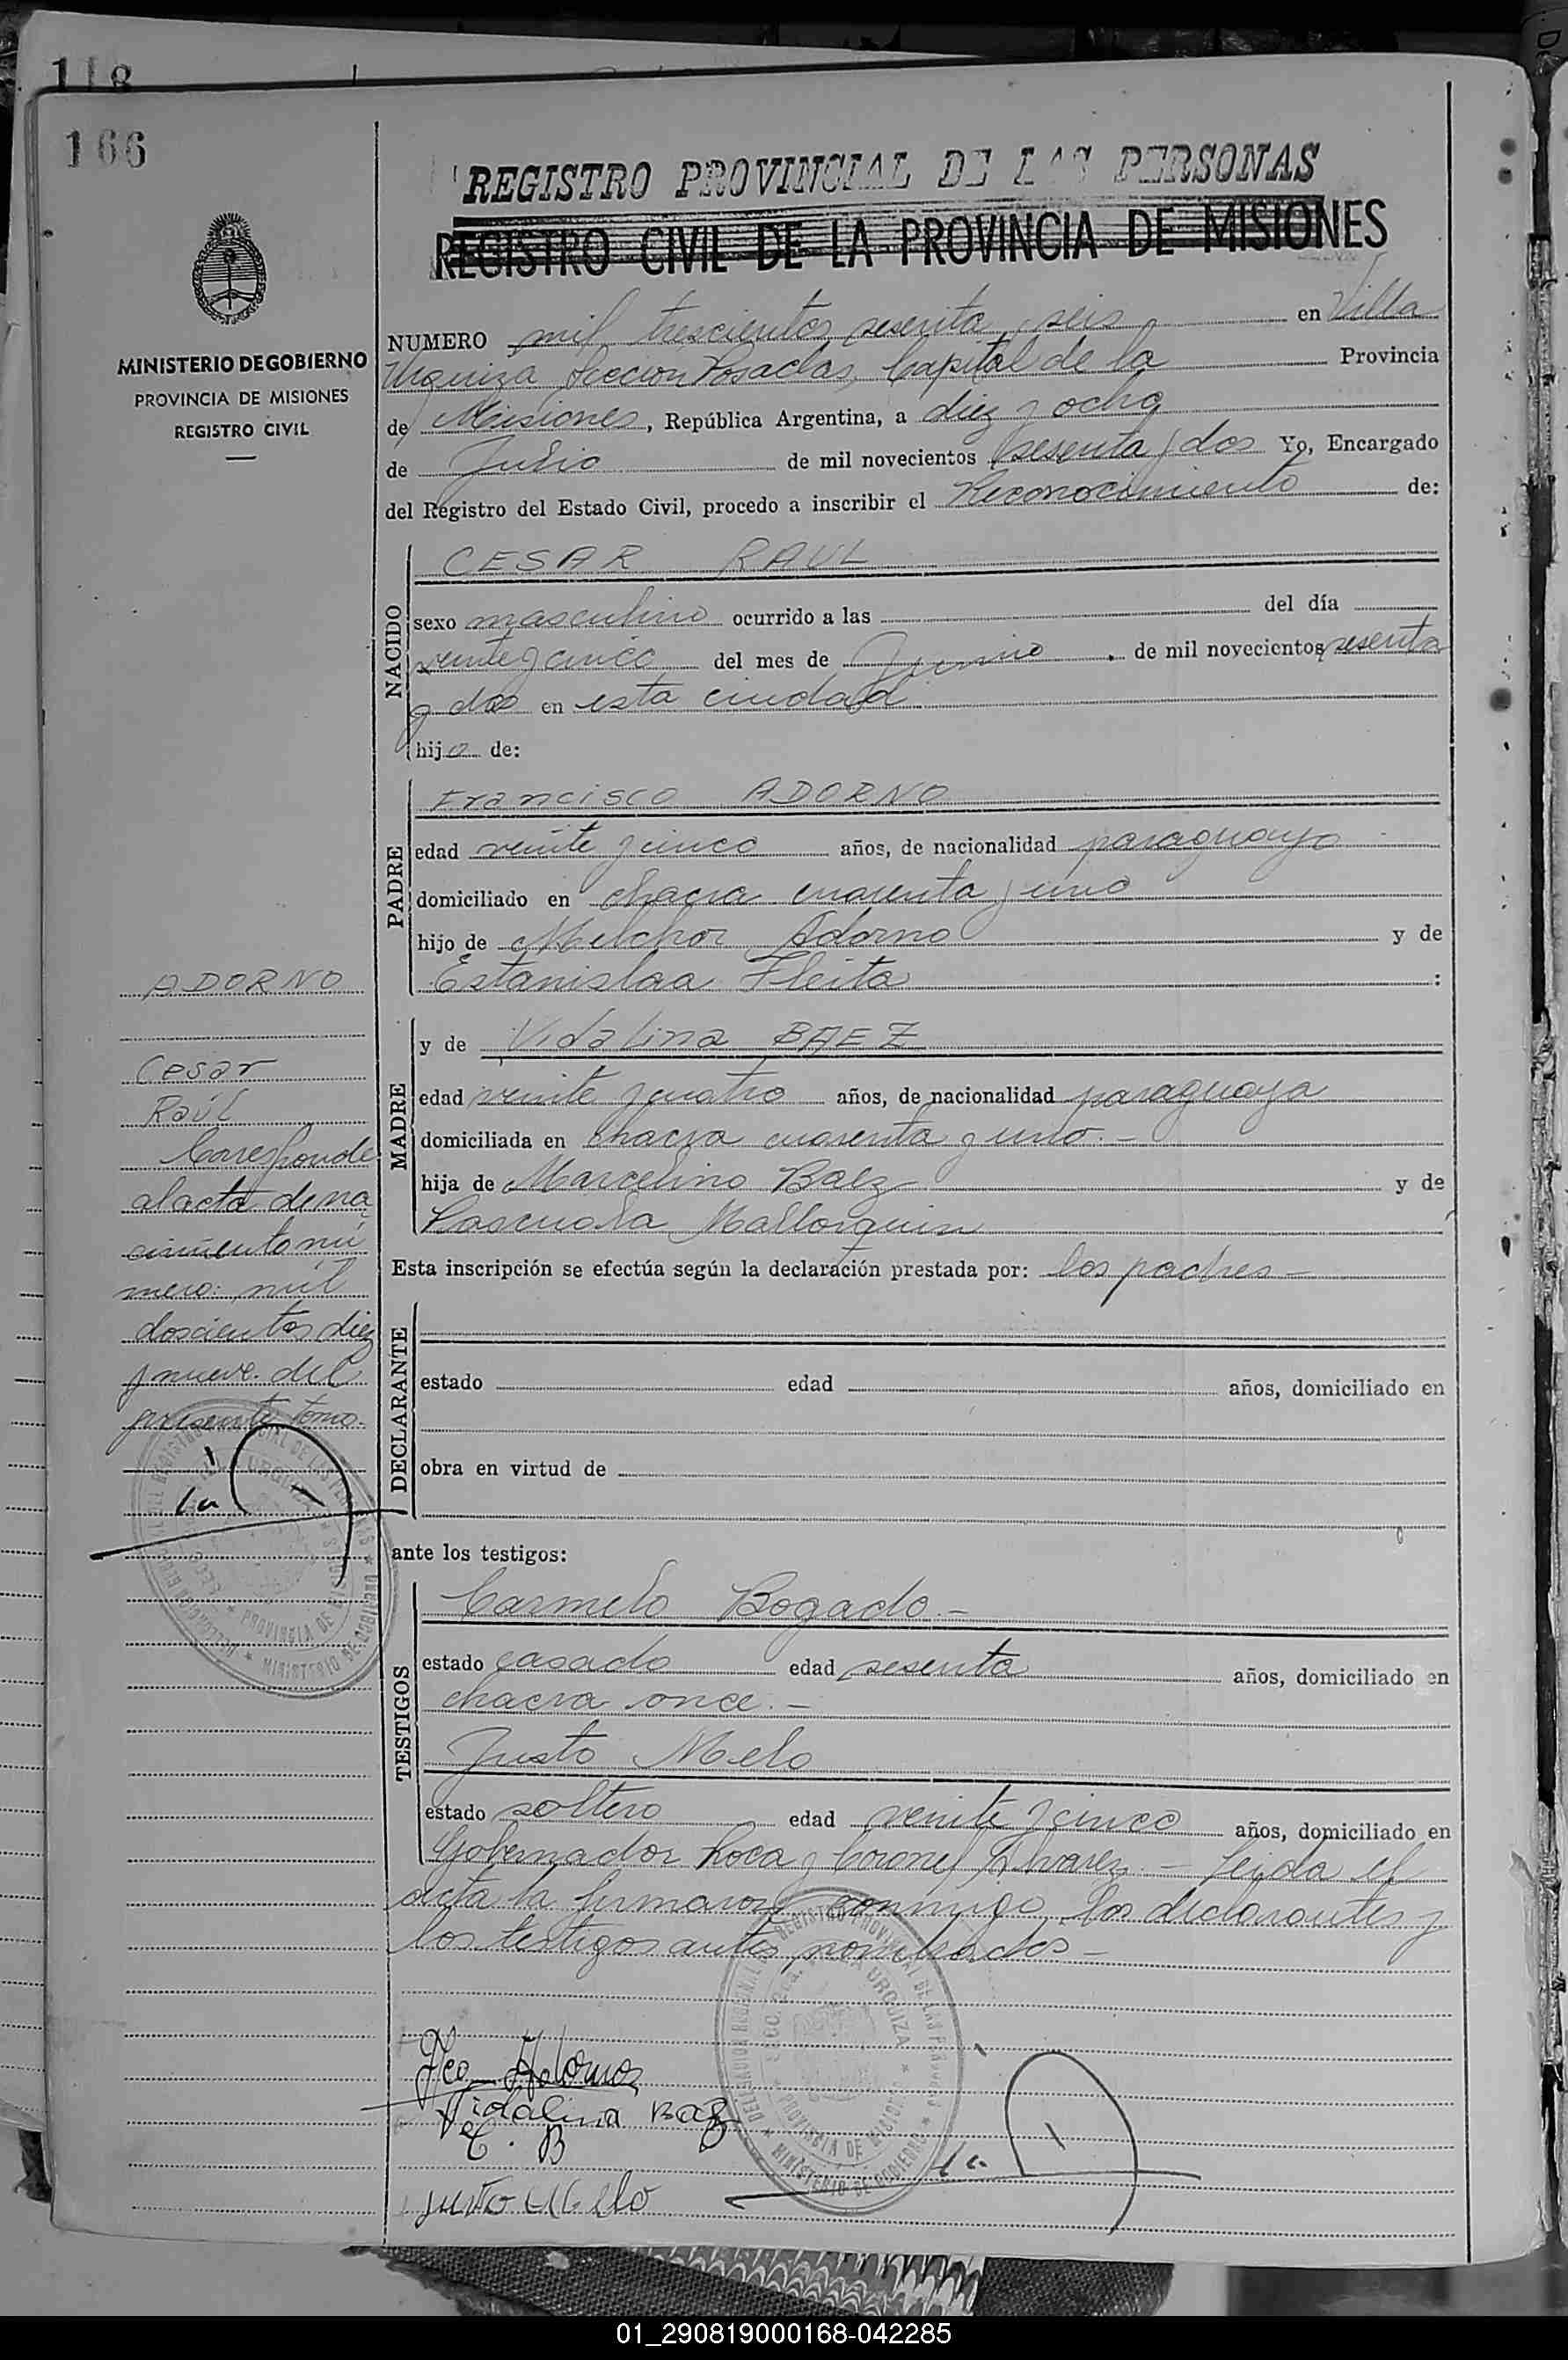 118
166
REGISTRO PROVINCIAL DE LAS PERSONAS
REGISTRO CIVIL DE LA PROVINCIA DE MISIONES
MINISTERIO DE GOBIERNO
PROVINCIA DE MISIONES
REGISTRO CIVIL
NUMERO mil trescientos sesenta y seis en Villa
Urquiza Seccion Posadas, Capital de la Provincia
de Misiones, República Argentina, a diez y ocho
de Julio de mil novecientos sesenta y dos Yo, Encargado
del Registro del Estado Civil, procedo a inscribir el Reconocimiento de:
NACIDO
CESAR RAUL
sexo masculino ocurrido a las del día
veinte y cinco del mes de Junio, de mil novecientos sesenta
y dos en esta ciudad
hijo de:
PADRE
Francisco ADORNO
edad veinte y cinco años, de nacionalidad paraguayo
domiciliado en chacra cuarenta y uno
hijo de Melchor Adorno y de
Estanislaa Fleita :
MADRE
y de Vidalina BAEZ
edad veinte y cuatro años, de nacionalidad paraguaya
domiciliada en chacra cuarenta y uno.-
hija de Marcelino Baez y de
Pascuala Mallorquin
Esta inscripción se efectúa según la declaración prestada por: los padres-
DECLARANTE
estado edad años, domiciliado en
obra en virtud de
ante los testigos:
TESTIGOS
Carmelo Bogado.-
estado casado edad sesenta años, domiciliado en
chacra once.-
Justo Melo
estado soltero edad veinte y cinco años, domiciliado en
Gobernador Roca y Coronel Alvarez.- Leida el
acta la firmaron conmigo los declarantes y
los testigos antes nombrados-
ADORNO
Cesar
Raúl
Corresponde
al acta de na
cimiento nú
mero: mil
doscientos diez
y nueve del
presente tomo.
PROVINCIA DE MISIONES
MINISTERIO DE GOBIERNO
Fco Adorno
Vidalina Baez
C. B
Justo Melo
DELEGACION REGIONAL DEL REGISTRO PROVINCIAL DE LAS PERSONAS
VILLA URQUIZA
PROVINCIA DE MISIONES
MINISTERIO DE GOBIERNO
01_290819000168-042285